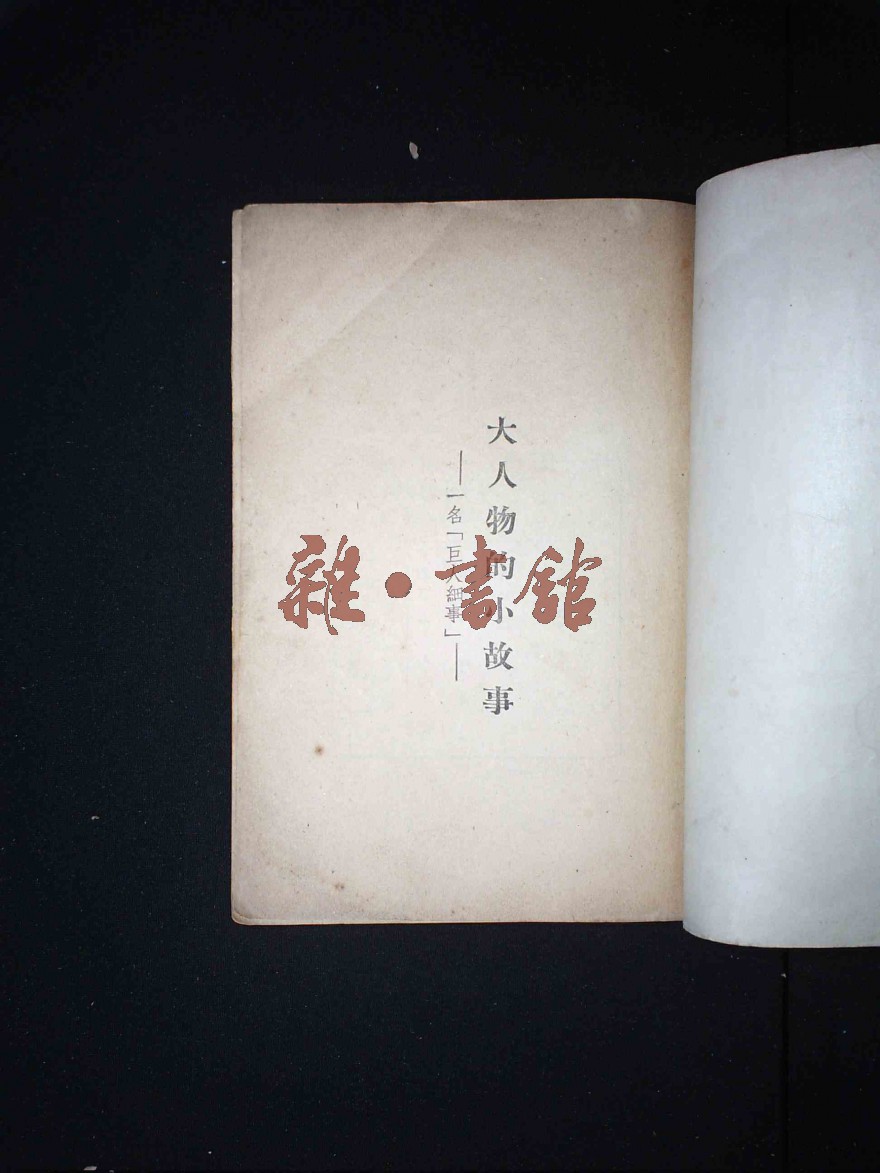 大人物的小故事
—一名「巨人細事」—
雜·書館